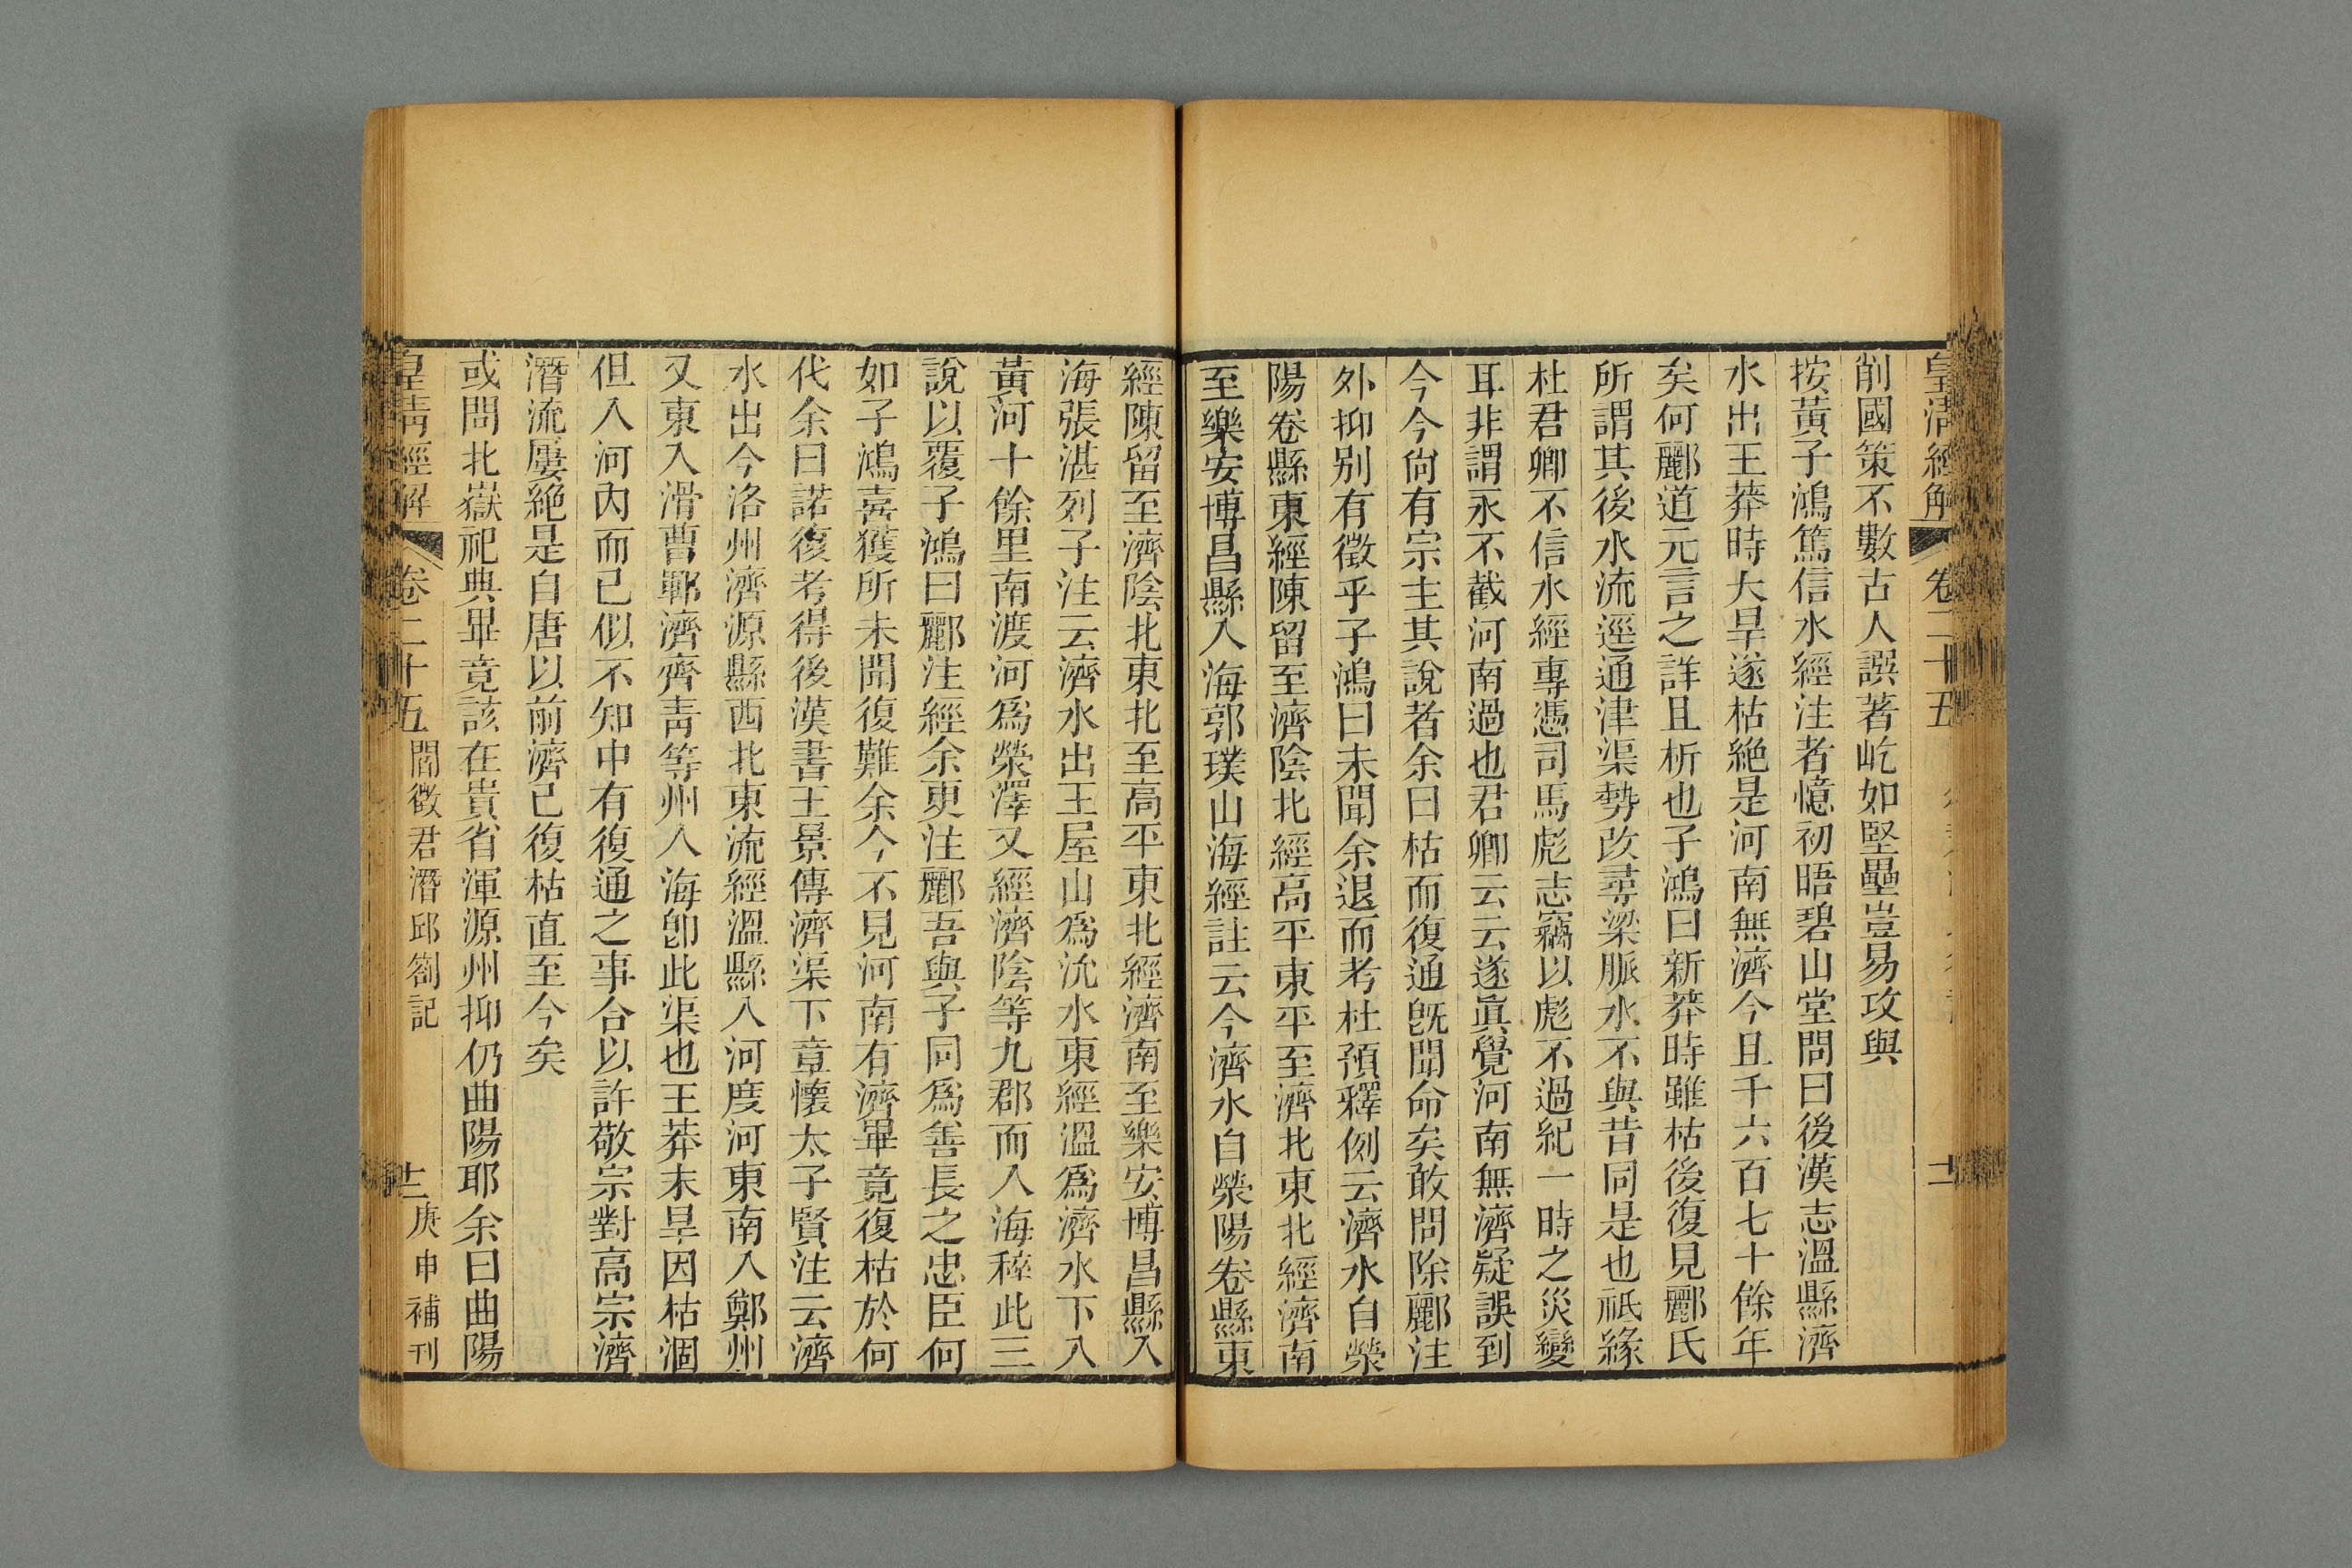 皇清經解 卷二十五
削國策不數古人譔著屹如堅壘豈易攻與
按黃子鴻篤信水經注者憶初晤碧山堂問曰後漢志溫縣濟
水出王莽時大旱遂枯絶是河南無濟今且千六百七十餘年
矣何酈道元言之詳且析也子鴻曰新莽時雖枯後復見酈氏
所謂其後水流逕通津渠勢改尋梁脈水不與昔同是也祇緣
杜君卿不信水經專憑司馬彪志竊以彪不過紀一時之災變
耳非謂永不截河南過也君卿云云遂眞覺河南無濟疑誤到
今今尙有宗主其說者余曰枯而復通旣聞命矣敢問除酈注
外抑别有徵乎子鴻曰未聞余退而考杜預釋例云濟水自滎
陽卷縣東經陳留至濟陰北經高平東平至濟北東北經濟南
至樂安博昌縣入海郭璞山海經註云今濟水自滎陽卷縣東
經陳留至濟陰北東北至高平東北經濟南至樂安博昌縣入
海張湛列子注云濟水出王屋山爲沇水東經溫爲濟水下入
黃河十餘里南渡河爲滎澤又經濟陰等九郡而入海稡此三
說以覆子鴻曰酈注經余更注酈吾與子同爲善長之忠臣何
如子鴻喜獲所未聞復難余今不見河南有濟畢竟復枯於何
代余曰諾復考得後漢書王景傳濟渠下章懷太子賢注云濟
水出今洛州濟源縣西北東流經溫縣入河度河東南入鄭州
又東入滑曹鄆濟齊靑等州入海卽此渠也王莽末旱因枯涸
但入河內而已似不知中有復通之事合以許敬宗對高宗濟
潛流屢絶是自唐以前濟已復枯直至今矣
或問北嶽祀典畢竟該在貴省渾源州抑仍曲陽耶余曰曲陽
皇清經解 卷二十五 閻徵君潛邱劄記 十二 庚申補刊